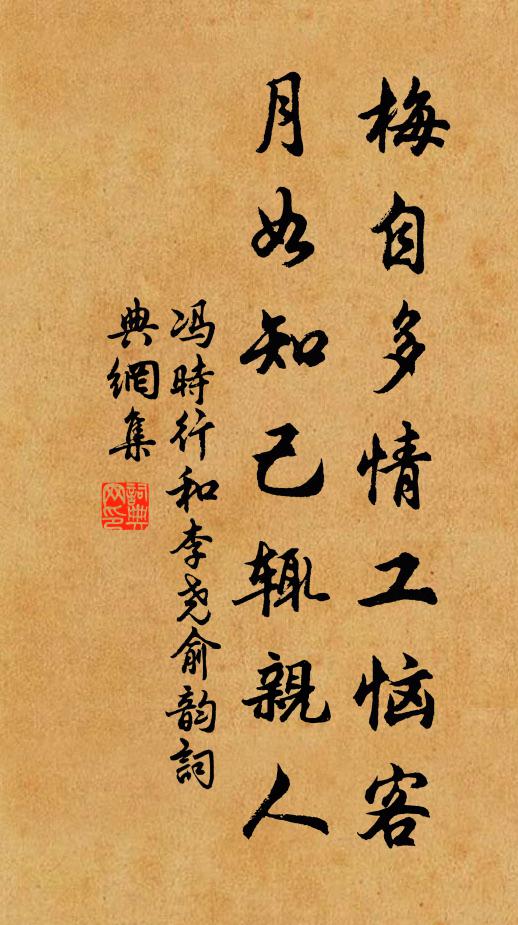 梅自多情工恼客
月如知己辄親人
冯時行和李尧俞韵詞
典網集
詞典网印